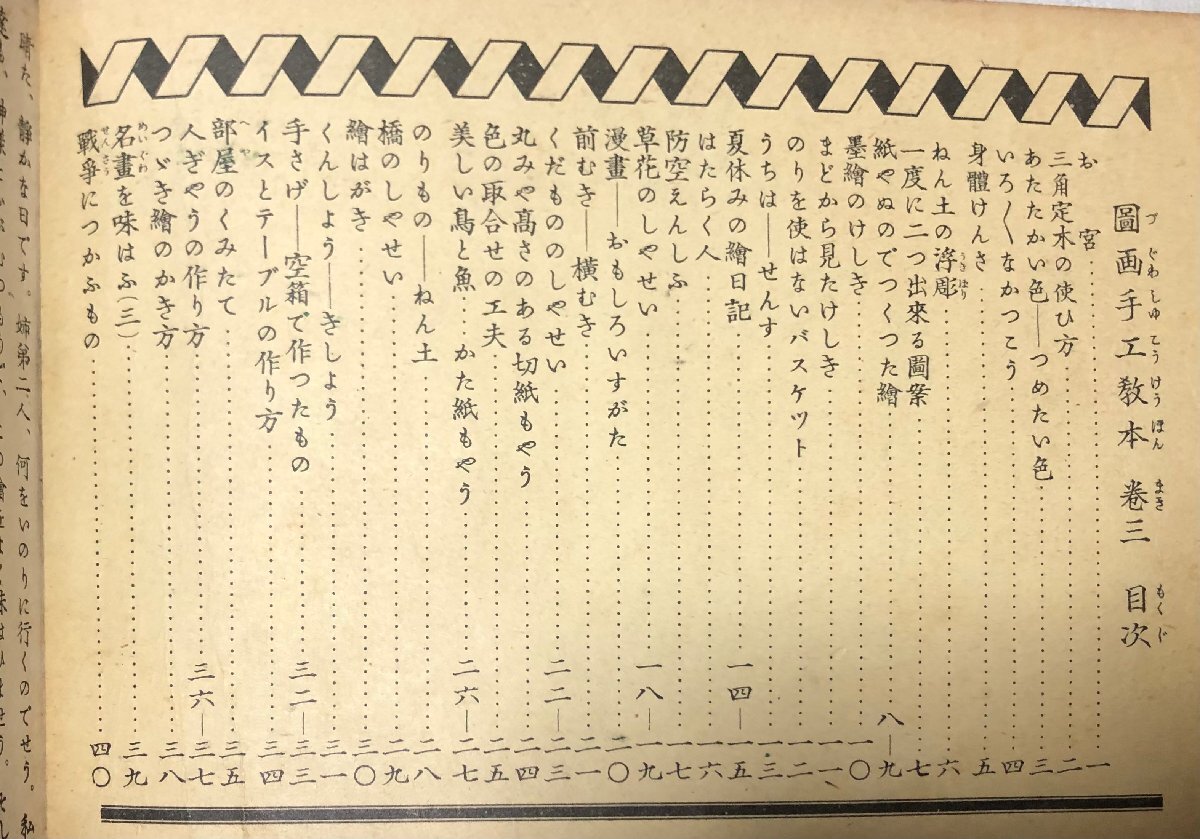 圖画手工教本 卷三 目次
づぐわしゆこうけうほん まき もくじ
お宮‥‥一
三角定木の使ひ方‥‥二
あたたかい色――つめたい色‥‥三
いろ〱なかつこう‥‥四
身體けんさ‥‥五
ねん土の浮彫‥‥六
うきぼり
一度に二つ出來る圖案‥‥七
紙やぬのでつくつた繪‥‥八―九
墨繪のけしき‥‥一〇
まどから見たけしき‥‥一一
のりを使はないバスケツト‥‥一二
うちは――せんす‥‥一三
夏休みの繪日記‥‥一四―一五
はたらく人‥‥一六
防空えんしふ‥‥一七
草花のしやせい‥‥一八―一九
漫畫――おもしろいすがた‥‥二〇
前むき――横むき‥‥二一
くだもののしやせい‥‥二二―二三
丸みや高さのある切紙もやう‥‥二四
色の取合せの工夫‥‥二五
美しい鳥と魚 かた紙もやう‥‥二六―二七
のりもの――ねん土‥‥二八
橋のしやせい‥‥二九
繪はがき‥‥三〇
くんしよう――きしよう‥‥三一
手さげ――空箱で作つたもの‥‥三二―三三
イスとテーブルの作り方‥‥三四
部屋のくみたて‥‥三五
へや
人ぎやうの作り方‥‥三六―三七
つゞき繪のかき方‥‥三八
名畫を味はふ(三)‥‥三九
めいぐわ
戰爭につかふもの‥‥四〇
せんさう
晴た、靜かな日です。姉弟二人、何をいのりに行くのでせう。私